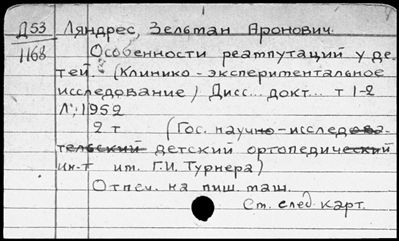 Д53 Ляндрес, Зельман Аронович.
1168 Особенности реампутаций у де-
тей. (Клинико-экспериментальное
исследование) Дисс... докт... т 1-2
Л., 1952
2 т (Гос. научно-исследова-
тельский детский ортопедический
ин-т им. Г.И. Турнера)
Отпеч. на пиш. маш.
См. след. карт.